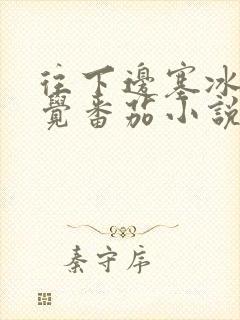 往下邊塞冰
覺番茄小說
秦守序